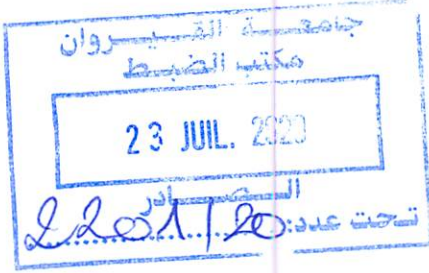 جامعة القيروان
مكتب الضبط
23 JUIL. 2020
الصادر
تحت عدد: 2201/20